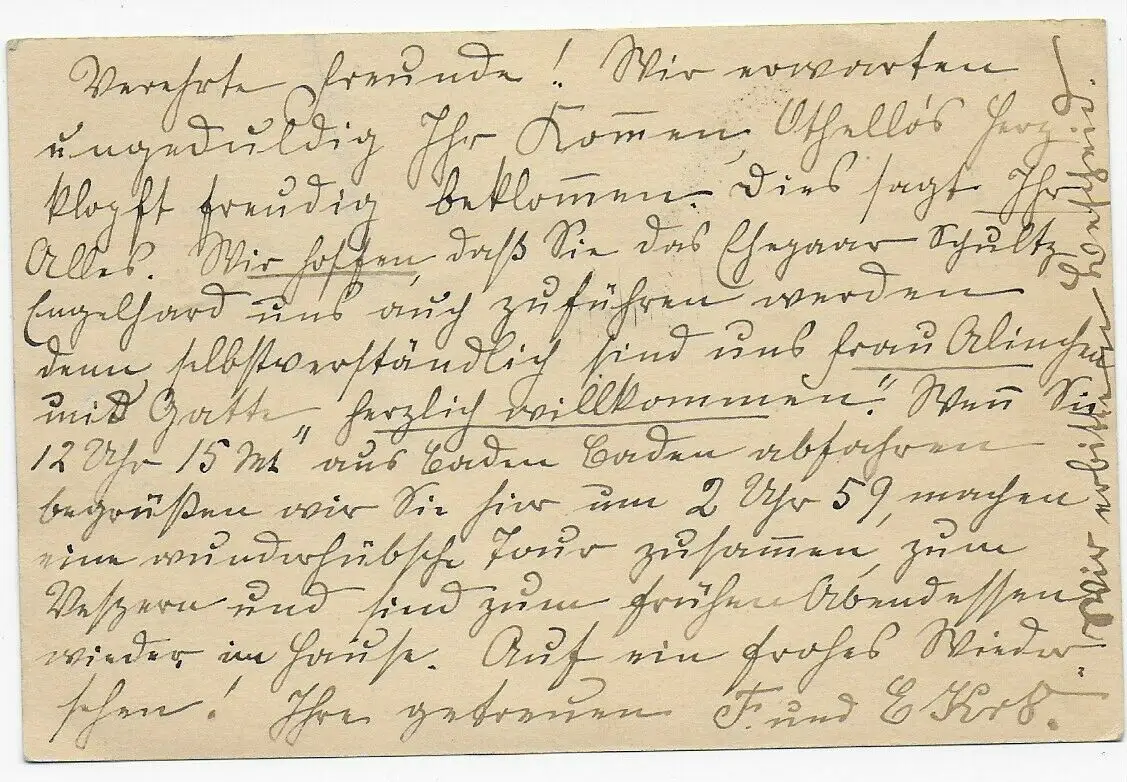 Verehrte Freunde! Wir erwarten
ungeduldig Ihr Kommen, Othello's Herz
klopft freudig beklom̄en. Dies sagt Ihr
Alles. Wir hoffen, daß Sie das Ehepaar Schultz
Engelhard uns auch zuführen werden
denn selbstverständlich sind uns Frau Alinchen
mit Gatte „herzlich willkommen". Wen̄ Sie
12 Uhr 15 Mt aus Baden Baden abfahren
begrüßen wir Sie hier um 2 Uhr 59, machen
eine wunderhübsche Tour zusam̄en, zum
Vespern und sind zum frühen Abendessen
wieder im Hause. Auf ein frohes Wieder-
sehen! Ihre getreuen F. und E
Wir erbitten Bescheid.